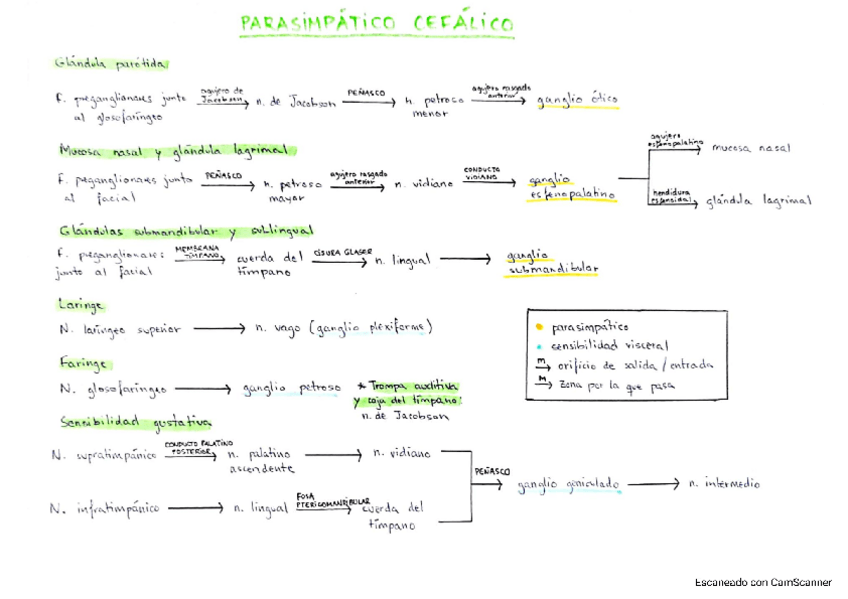 PARASIMPÁTICO CEFÁLICO
Glándula parótida
F. preganglionares junto al glosofaríngeo agujero de Jacobson n. de Jacobson PEÑASCO n. petroso menor agujero rasgado anterior ganglio ótico
Mucosa nasal y glándula lagrimal
F. preganglionares junto al facial PEÑASCO n. petroso mayor agujero rasgado anterior n. vidiano CONDUCTO VIDIANO ganglio esfenopalatino
agujero esfenopalatino mucosa nasal
hendidura esfenoidal glándula lagrimal
Glándulas submandibular y sublingual
F. preganglionares junto al facial MEMBRANA TÍMPANO cuerda del tímpano CISURA GLASER n. lingual ganglio submandibular
Laringe
N. laríngeo superior n. vago (ganglio plexiforme)
Faringe
N. glosofaríngeo ganglio petroso
* Trompa auditiva
y caja del tímpano:
n. de Jacobson
parasimpático
sensibilidad visceral
m orificio de salida / entrada
M Zona por la que pasa
Sensibilidad gustativa
N. supratimpánico CONDUCTO PALATINO POSTERIOR n. palatino ascendente n. vidiano
N. infratimpánico n. lingual FOSA PTERIGOMANDIBULAR cuerda del tímpano
PEÑASCO ganglio geniculado n. intermedio
Escaneado con CamScanner